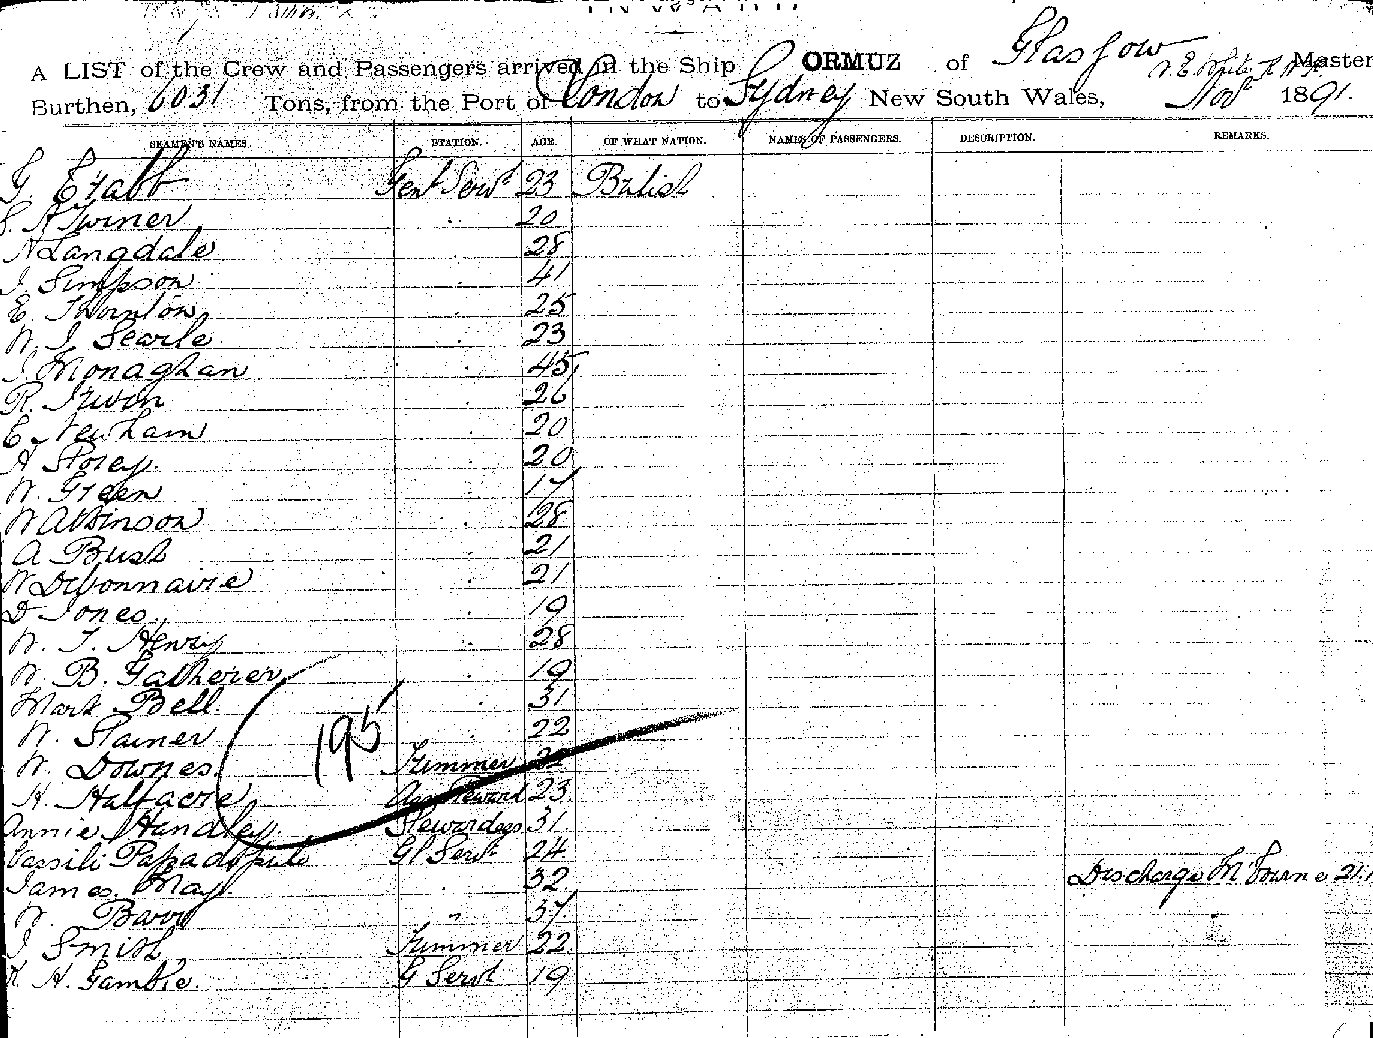 INWARD
A LIST of the Crew and Passengers arrived in the Ship ORMUZ of Glasgow Master
Burthen, 6031 Tons, from the Port of London to Sydney, New South Wales, Nov 1891.
SEAMEN'S NAMES. STATION. AGE. OF WHAT NATION. NAMES OF PASSENGERS. DESCRIPTION. REMARKS.
G. Crabb Genl Servt 23 British
Turner " 20
Langdale 28
J. Simpson 41
E. Thornton 25
W. J. Searle 23
J Monaghan 45
R. Irwin 26
E Newham 20
A Storey 20
W. Green 17
W Atkinson 28
A Bush 21
W Debonnaire 21
D Jones 19
W. T. Henry 28
W. B. Gatherer 19
Mark Bell 31
W. Stainer 22
W. Downes Trimmer
H. Halfacre 23
195
Annie Handley Stewardess 31
Vassili Papadopulo Gl Servt 24
James May 32 Discharge M'bourne 21
W. 37
J Smith Trimmer 22
H. Gamble G Servt 19